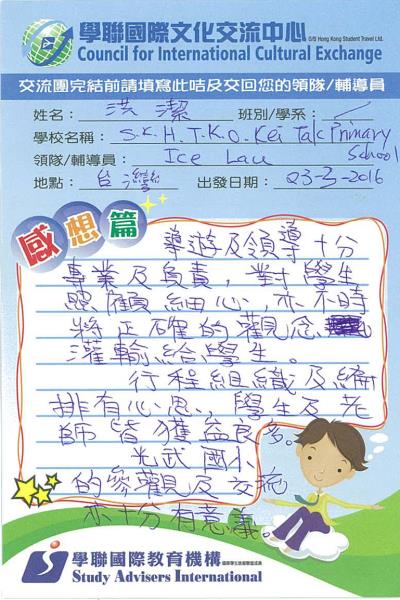 學聯國際文化交流中心 O/B Hong Kong Student Travel Ltd.
Council for International Cultural Exchange
交流團完結前請填寫此咭及交回您的領隊/輔導員
姓名: 洪潔 班別/學系:
學校名稱: S.K.H.T.K.O. Kei Tak Primary School
領隊/輔導員: Ice Lau
地點: 台灣 出發日期: 03-3-2016
感想篇
導遊及領導十分
專業及負責,對學生
照顧細心,亦不時
將正確的觀念
灌輸給學生。
行程組織及編
排有心思,學生及老
師皆獲益良多。
光武國小
的參觀及交流
亦十分有意義。
學聯國際教育機構
Study Advisers International